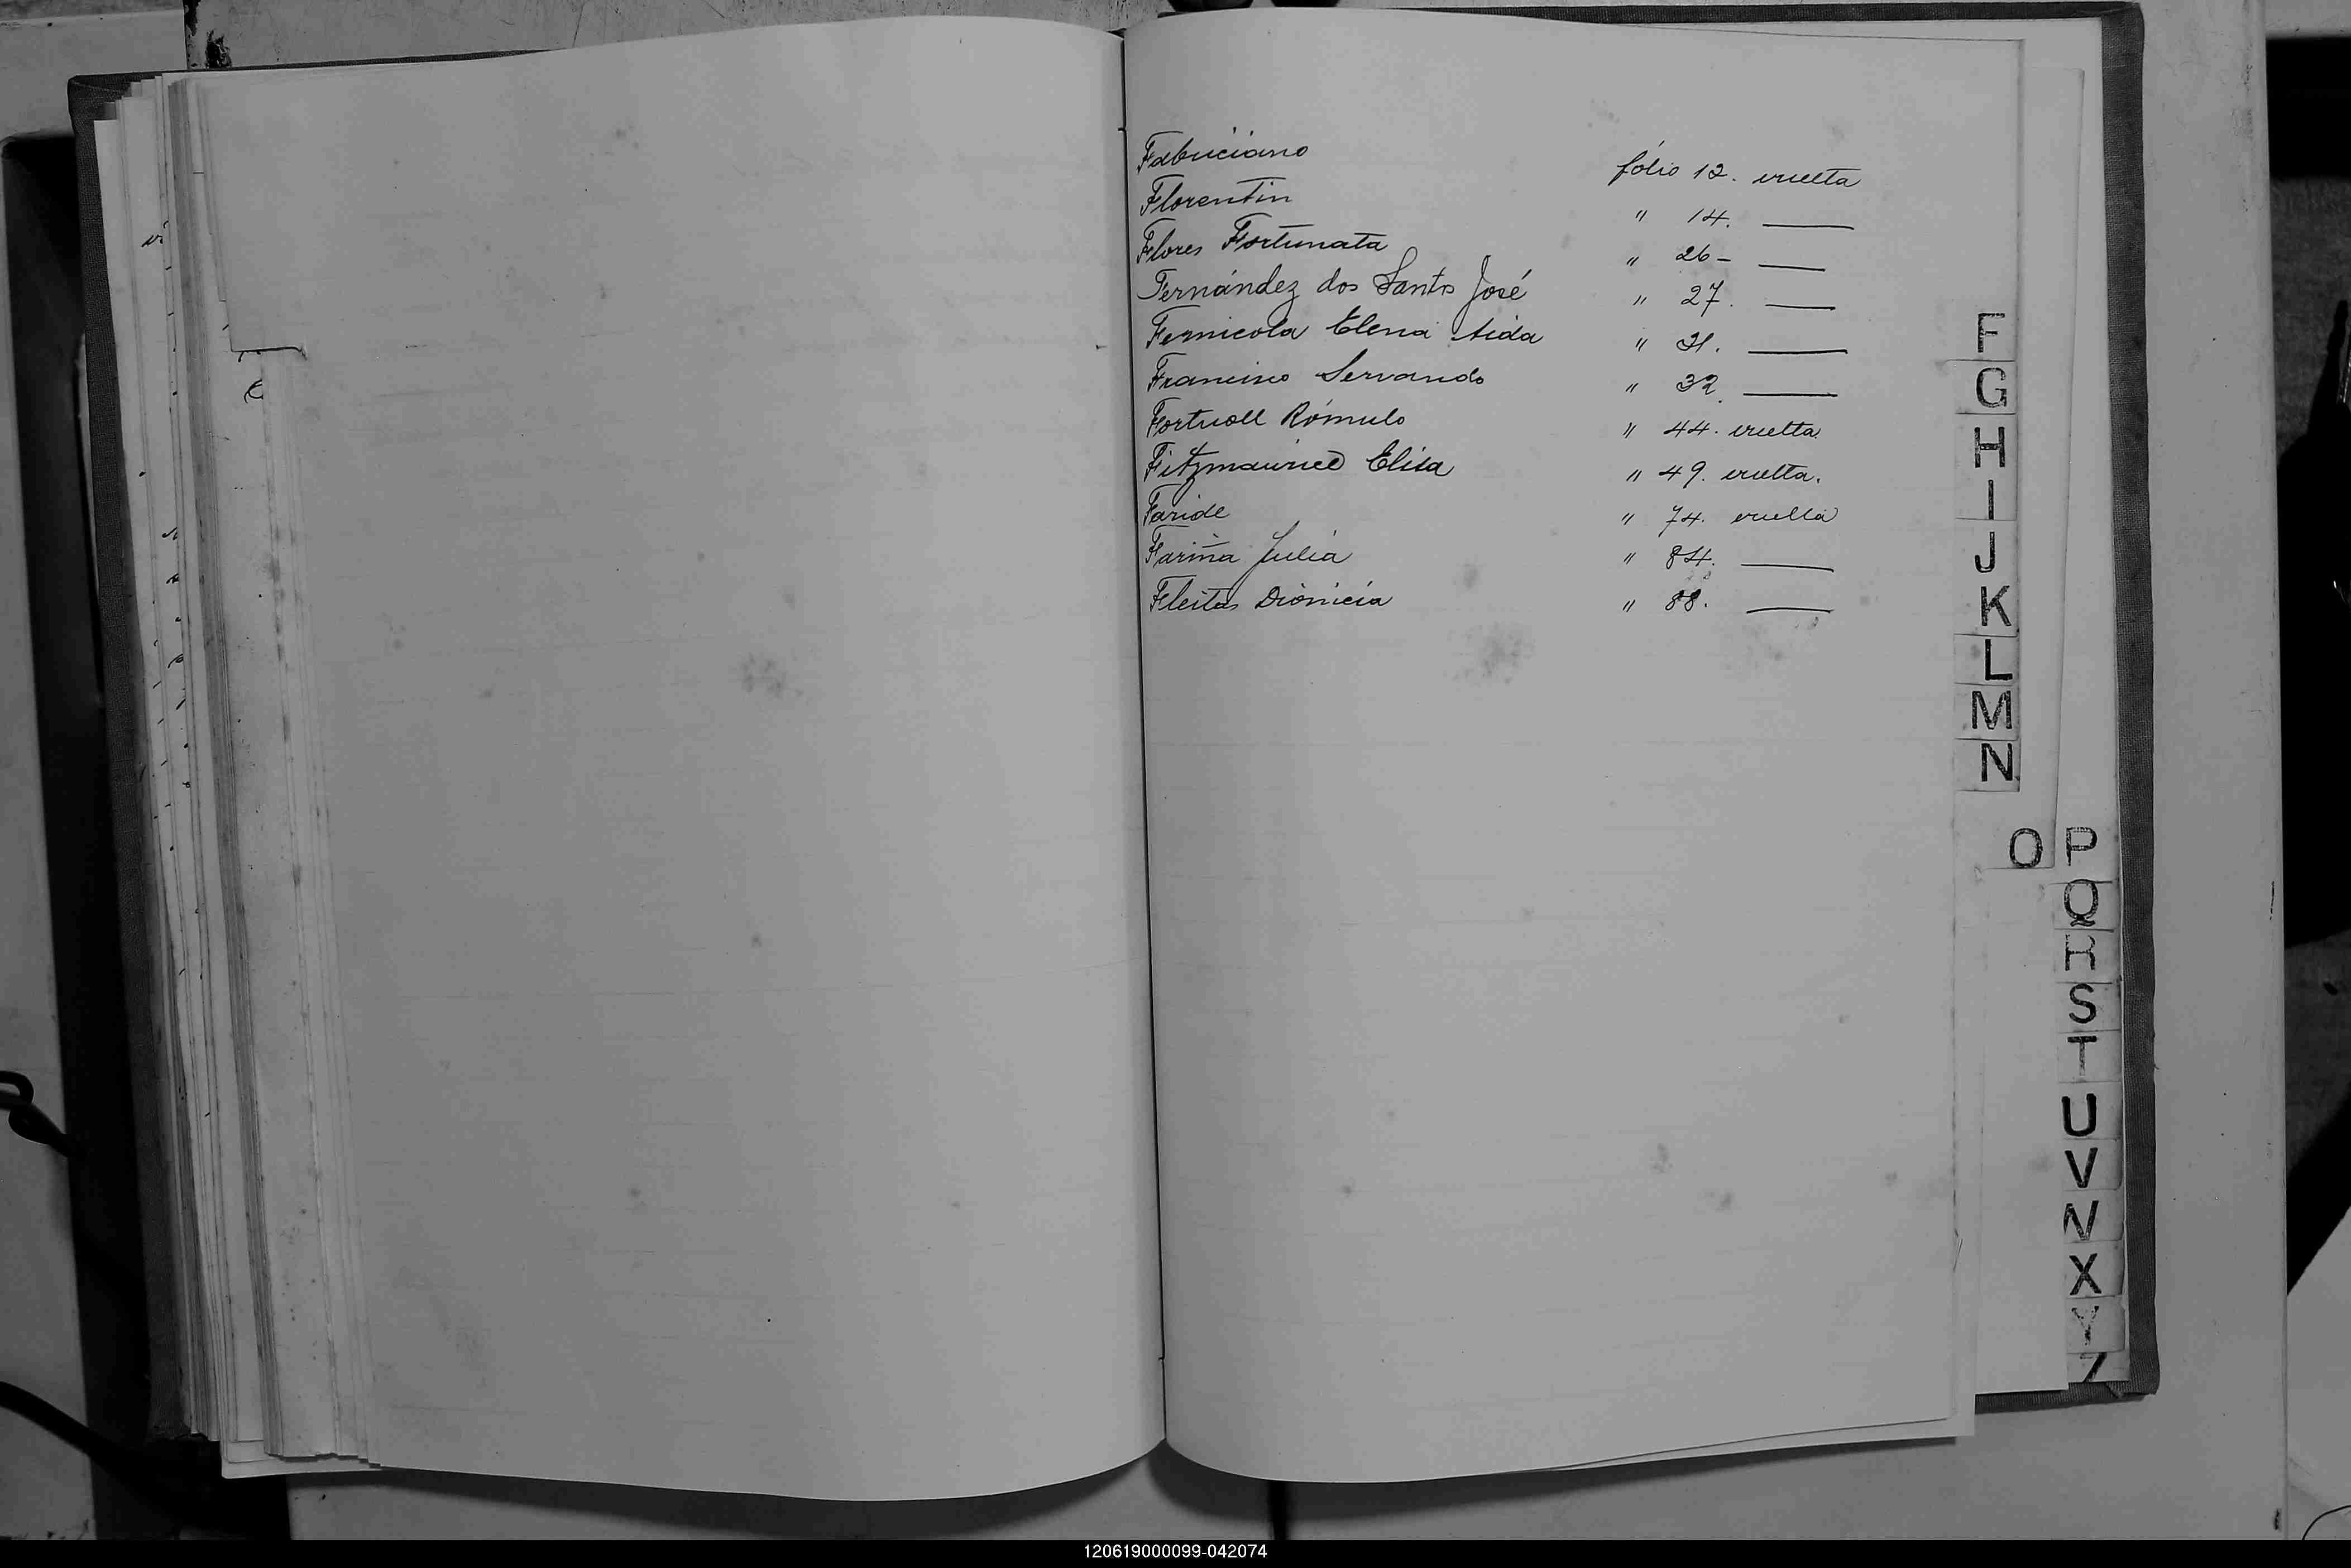 Fabriciano fólio 12. vuelta
Florentin " 14. ——
Flores Fortunata " 26 - ——
Fernández dos Santos José " 27. ——
Fernicola Elena Aida " 31. ——
Francisco Servando " 32. ——
Fortuoll Rómulo " 44. vuelta.
Fitzmaurice Elisa " 49. vuelta.
Faride " 74. vuelta
Fariña Julia " 84. ——
Fleitas Dionicia " 88. ——
F
G
H
I
J
K
L
M
N
O P
Q
R
S
T
U
V
X
Y
Z
120619000099-042074